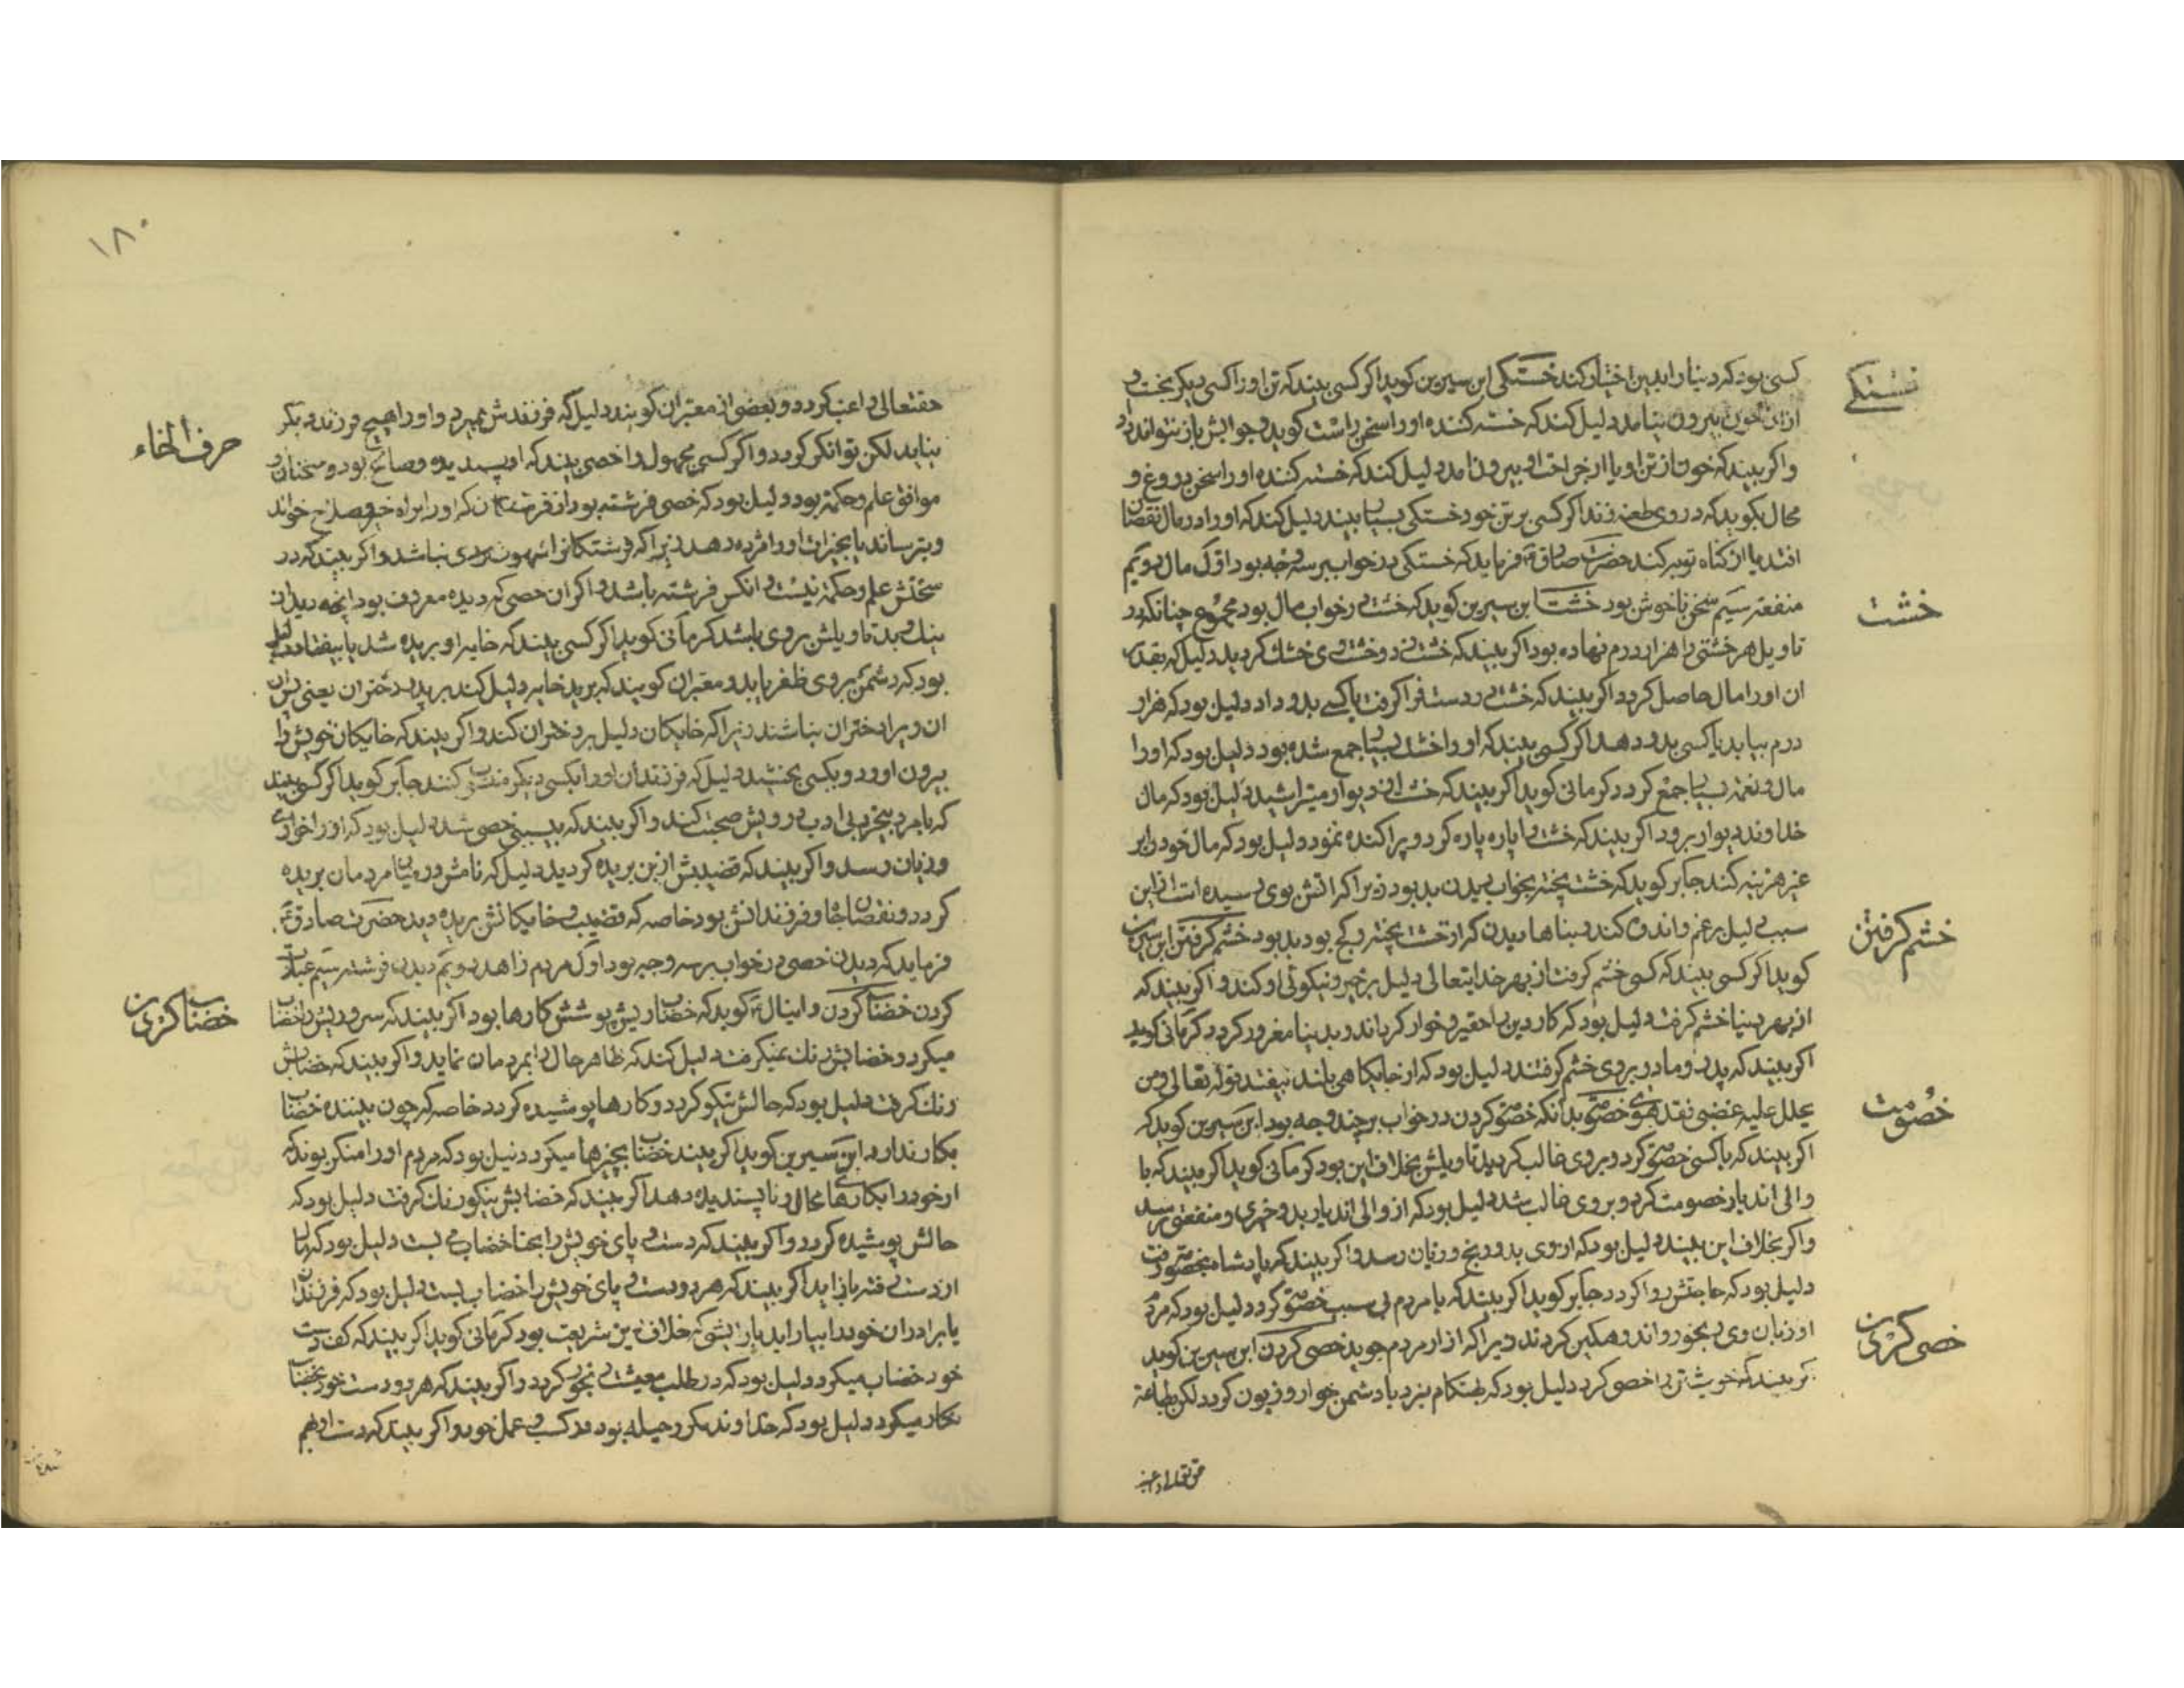 خستگی
کسی بود که دنیا را بدین اختیار کند خستگی ابن سیرین کوید اکر کسی بیند که تن او را کسی دیکر بخست و
از ان خون بیرون نیامد دلیل کند که خسته کننده او را سخن راست کوید و جوابش باز نتواند داد
واکر بیند که خون از تن او یا از جراحت او بیرون امد دلیل کند که خسته کننده او را سخن دروغ و
محال بکوید که در وی طعنه زند اکر کسی بر تن خود خستگی بسیار بیند دلیل کند که او را در مال نقصان
افتد یا از کناه توبه کند حضرت صادق فرماید که خستکی در خواب بر سه وجه بود اول مال دویم
خشت
منفعت سیم سخن ناخوش بود خشت ابن سیرین کوید که خشت در خواب مال بود مجموع چنانکه در
تاویل هر خشتی را هزار درم نهاده بود اکر بیند که خشت دو خشت وی خشک کردید دلیل که بقدر
ان او را مال حاصل کردد اکر بیند که خشت در دست فرا کرفت یا کسی بدو داد دلیل بود که هزار
درم بیابد یا کسی بدو دهد اکر کسی بیند که او را خشت بسیار جمع شده بود دلیل بود که او را
مال و نعمت بسیار جمع کردد کرمانی کوید اکر بیند که خشت از دیوار میتراشید دلیل بود که مال
خداوند دیوار برود اکر بیند که خشت را پاره پاره کرد و پراکنده نمود دلیل بود که مال خود را بر
هزینه کند جابر کوید که خشت پخته بخواب دیدن بد بود زیرا که اتش بوی رسیده است از این
خشم کرفتن
سبب دلیل بر غم و اندوه کند و بناها دیدن که از خشت پخته و کج بود بد بود خشم کرفتن ابن سیرین
کوید اکر کسی بیند که کسی خشم کرفت از بهر خدایتعالی دلیل بر خیر و نیکوئی او کند و اکر بیند که
از بهر دنیا خشم کرفت دلیل بود که کار دین را حقیر و خوار کرداند و بدنیا مغرور کردد کرمانی کوید
اکر بیند که پدر و مادر بر وی خشم کرفتند دلیل بود که از جایکاهی بلند بیفتد قوله تعالی ومن
خصومت
یحلل علیه غضبی فقد هوی خصومت بدانکه خصومت کردن در خواب بر چند وجه بود ابن سیرین کوید که
اکر بیند که با کسی خصومت کرد و بر وی غالب کردید تاویلش بخلاف این بود کرمانی کوید اکر بیند که با
والی ان دیار خصومت کرد و بر وی غالب شد دلیل بود که از والی ان دیار بدو خیری و منفعتی رسد
واکر بخلاف این بیند دلیل بود که از وی بدو رنج و زیان رسد واکر بیند که با پادشاه بخصومت رفت
دلیل بود که حاجتش روا کردد جابر کوید اکر بیند که با مردم بی سبب خصومت کرد دلیل بود که مردم
خصی کردن
از زبان وی رنجور و اندوهکین کردند زیرا که ازار مردم جوید خصی کردن ابن سیرین کوید
اکر بیند که خویشتن را خصی کرد دلیل بود که بهنکام نبرد با دشمن خوار و زبون کردد لکن بطاعة
حق تعالی راغب
۱۸۰
حرف الخاء
حقتعالی راغب کردد و بعضی از معبران کویند دلیل که فرزندش بمیرد و او را هیچ فرزند دیکر
نیاید لکن توانکر کردد و اکر کسی مجهول را خصی بیند که او پسندیده و صالح بود و سخنان او
موافق علم و حکمة بود دلیل بود که خصی فرشته بود از فرشتکان که او را براه خیر و صلاح خواند
و بترساند یا بخیرات او را مژده دهد زیرا که فرشتکانرا شهوت مردی نباشد و اکر بیند که در
سخنش علم و حکمة نیست انکس فرشته باشد و اکر ان خصی که دیده معروف بود انچه دید از
نیک و بد تاویلش بر وی باشد کرمانی کوید اکر کسی بیند که خایه او بریده شد یا بیفتاد دلیل
بود که دشمن بر وی ظفر یابد و معبران کویند که برید خایه دلیل کند بر برید دختران یعنی پس از
ان ویرا دختران نباشند زیرا که خایکان دلیل بر دختران کند و اکر بیند که خایکان خویش را
بیرون اورد و بکسی بخشید دلیل که فرزندان او را بکسی دیکر منسوب کنند جابر کوید اکر کسی بیند
که با مرد بیخرد بی ادب درویش صحبت کند و اکر بیند که بسببی خصی شد دلیل بود که او را خواری
و زیان رسد و اکر بیند که قضیبش از بن بریده کردید دلیل که نامش در میان مردمان بریده
کردد و نقصان جاه و فرزندانش بود خاصه که قضیب و خایکانش بریده دید حضرت صادق ع
فرماید که دیدن خصی در خواب بر سه وجه بود اول مردم زاهد دویم دیدن فرشته سیم عبادت
خضاب کردن
کردن خضاب کردن دانیال ع کوید که خضاب ریش پوشش کارها بود اکر بیند که سر و ریش را خضاب
میکرد و خضابش رنک نمیکرفت دلیل کند که ظاهر حال را بمردمان نماید و اکر بیند که خضابش
رنک کرفت دلیل بود که حالش نیکو کردد و کارها پوشیده کردد خاصه که چون بیننده خضاب
بکار ندارد ابن سیرین کوید اکر بیند خضاب بچیزها میکرد دلیل بود که مردم او را منکر بوند که
او خود را بکارهای محال و ناپسندیده دهد اکر بیند که خضابش نیکو رنک کرفت دلیل بود که
حالش پوشیده کردد و اکر بیند که دست و پای خویش را بحنا خضاب می بست دلیل بود که مال
از دست رفته باز یابد اکر بیند که هر دو دست و پای خویش را خضاب بست دلیل بود که فرزندان
یا برادران خود را بیاراید بارایشی که خلاف دین شریعت بود کرمانی کوید اکر بیند که کف دست
خود خضاب میکرد دلیل بود که در طلب معیشت رنجور کردد و اکر بیند که هر دو دست خود بخضاب
نکار میکرد دلیل بود که خداوند مکر و حیله بود در کسب و عمل خود و اکر بیند که دست او بهم